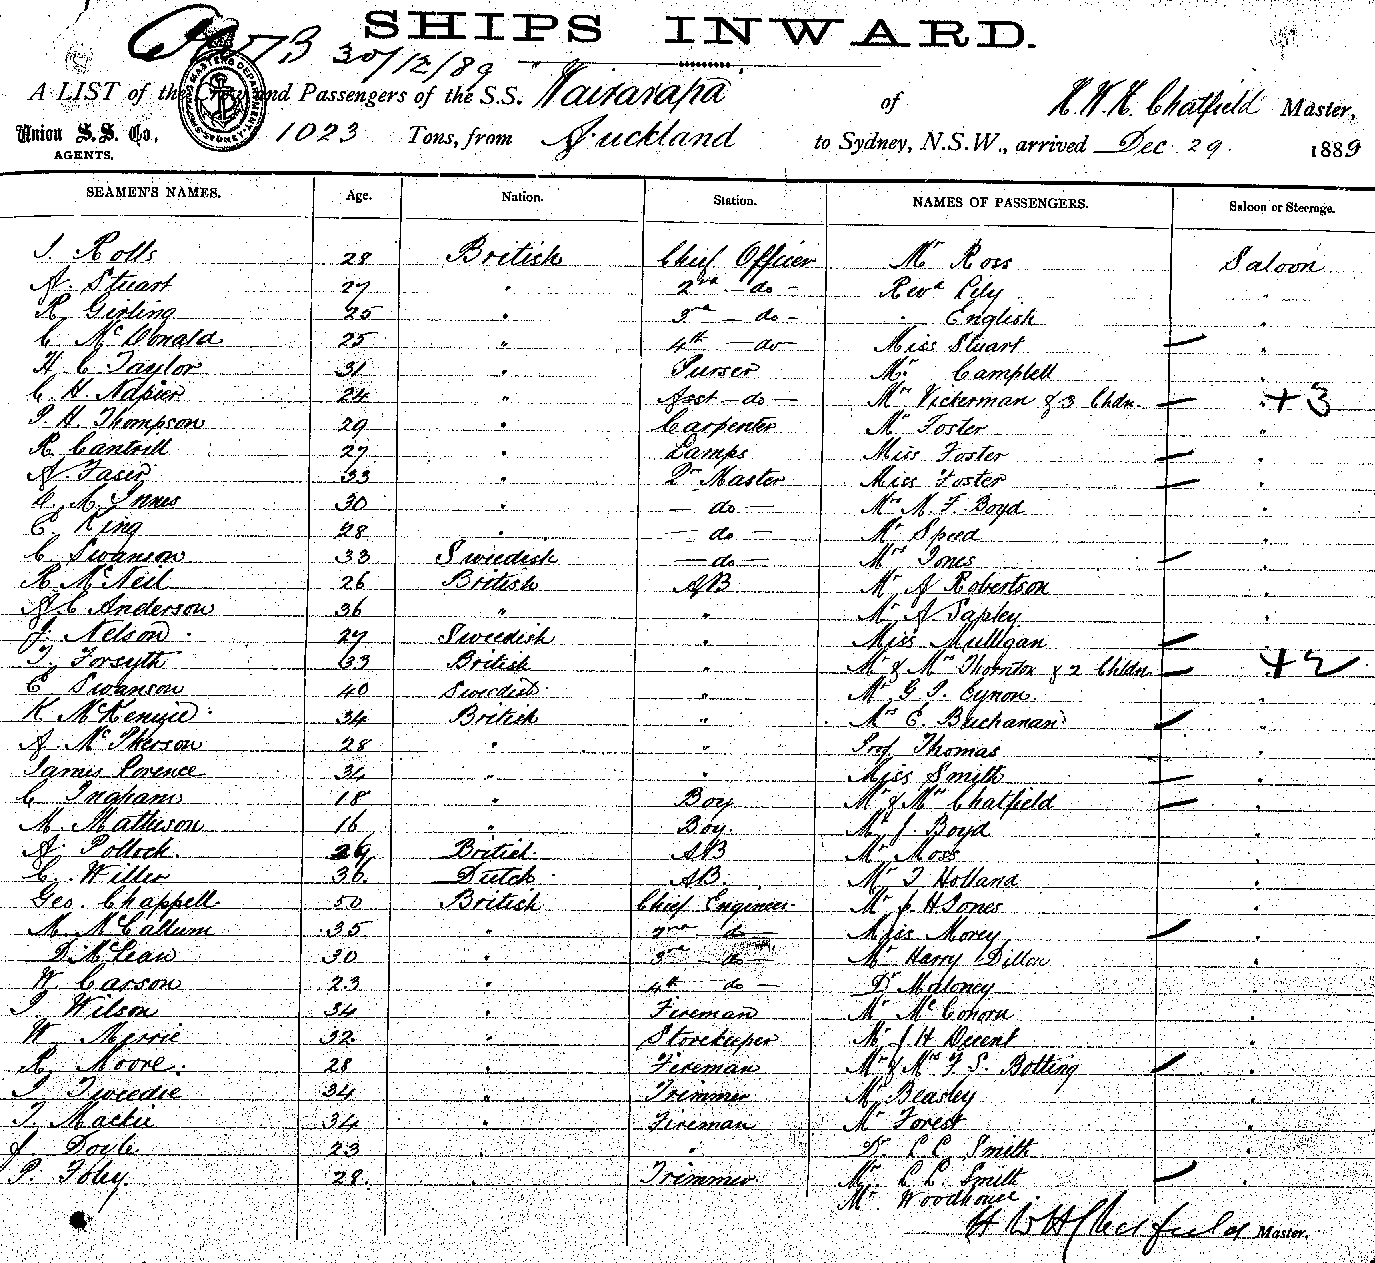 SHIPS INWARD.
30/12/89
A LIST of the Crew and Passengers of the S.S. Wairarapa of H. W. H. Chatfield Master,
Union S. S. Co, 1023 Tons, from Auckland to Sydney, N.S.W., arrived Dec 29. 1889
AGENTS.
SEAMEN'S NAMES. Age. Nation. Station. NAMES OF PASSENGERS. Saloon or Steerage.
J. Rolls 28 British Chief Officer Mr Ross Saloon
A. Stuart 27 " 2nd - do - Revd Lily "
R. Girling 25 " 3rd - do - " English "
C. McDonald 25 " 4th - do Miss Stuart - "
H. C. Taylor 31 " Purser Mr. Campbell "
C. H. Napier 24 " Asst - do - Mrs Vickerman & 3 Chdn - " +3
J. H. Thompson 29 " Carpenter Mr Foster "
R. Cantrill 27 " Lamps Miss Foster - "
A. 33 " Qr Master Miss Foster - "
A. Innes 30 - do - Mrs M. F. Boyd "
E. King 28 " - do - Mr Speed "
C. Swanson 33 Swedish - do - Mrs Jones - "
R. McNeil 26 British AB Mr A Robertson "
A. C. Anderson 36 " " Mr A Sapley "
J. Nelson 27 Swedish " Miss Mulligan - "
T. Forsyth 33 British " Mr & Mrs Thornton & 2 Chldn - " +2
E. Swanson 40 Swedish " Mr G. J. Eynon. "
K. McKenzie 34 British " Mrs E. Buchanan - "
A. McPherson 28 " " Prof Thomas "
James Lorence 34 " " Miss Smith - "
C. Ingham 18 " Boy Mr & Mrs Chatfield - "
M. Matheson 16 " Boy. Mr J. Boyd "
A. Pollock. 26 British AB Mr Moss "
C. Willer 36. Dutch AB. Mr J Holland "
Geo. Chappell 50 British Chief Engineer Mr J. H Jones "
M. McCallum 35 " 2nd do - Miss Morey - "
D. McLean 30 " 3rd do Mr Harry Dillon "
W. Carson 23 " 4th do - Dr Maloney "
J. Wilson 34 " Fireman Mr McCohorn "
W. Merrie 32 " Storekeeper Mr J H Decent "
R. Moore. 28 " Fireman Mr & Mrs F. S. Botting - "
J. Tweedie 34 " Trimmer Mr Beasley "
T. Mackie 34 " Fireman Mr Forest "
J. Doyle 23 " " Dr. L. L. Smith "
P. Foley 28. " Trimmer Mr. L. L. Smith - "
Mr. Woodhouse.
H W H Chatfield Master.